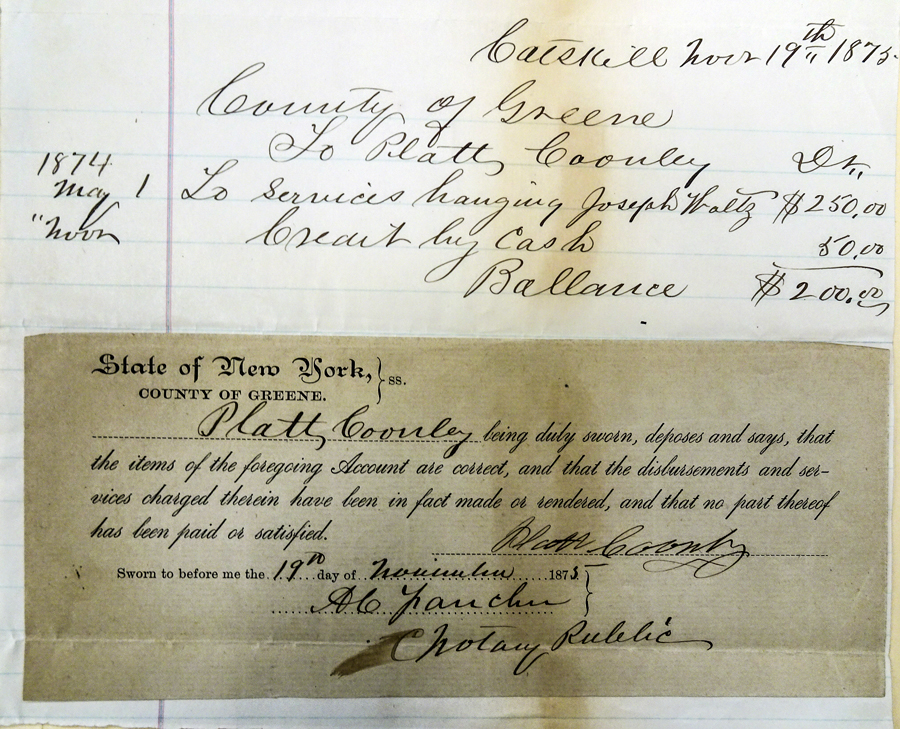 Catskill Novr 19th 1875
County of Greene
To Platt Coonley Dr,,
1874
May 1 To services hanging Joseph Waltz $250.00
"Novr Credit by Cash 50.00
Ballance $200.00
State of New York,
COUNTY OF GREENE. } ss.
Platt Coonley being duly sworn, deposes and says, that
the items of the foregoing Account are correct, and that the disbursements and ser-
vices charged therein have been in fact made or rendered, and that no part thereof
has been paid or satisfied.
Platt Coonley
Sworn to before me the 19th day of November 1875 }
Notary Public